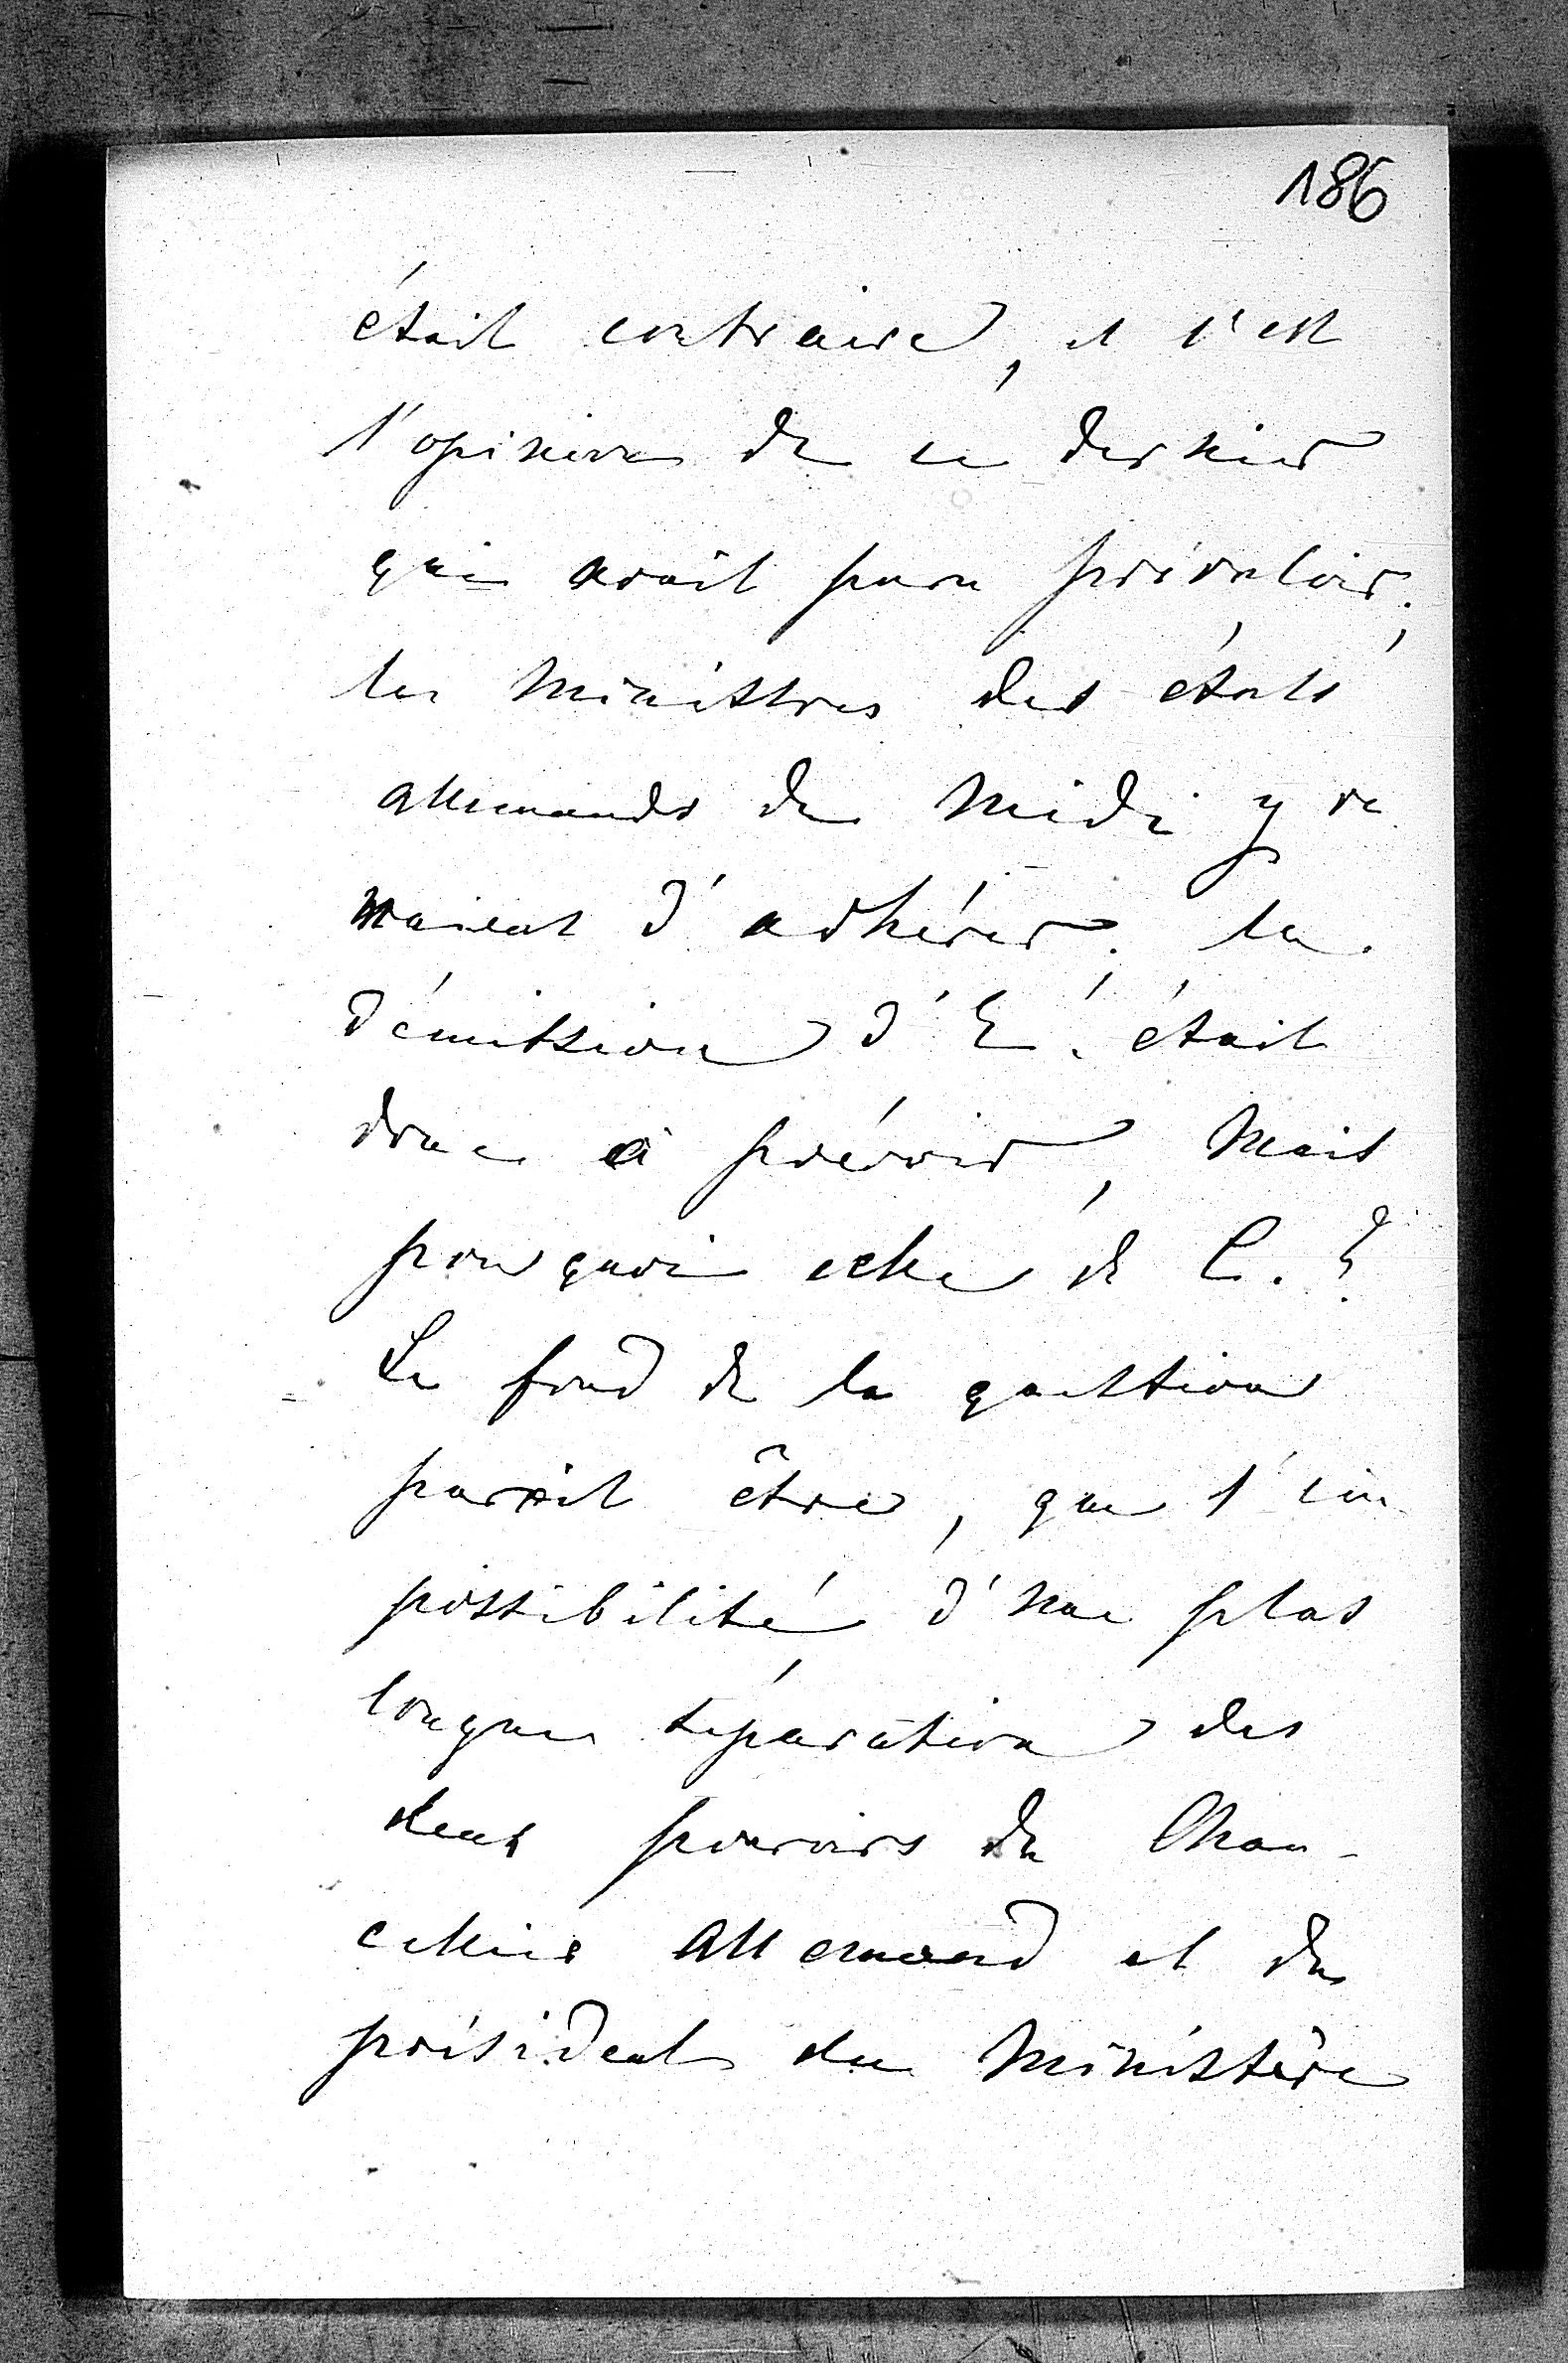 186
était contraire, et c'est
l'opinion de ce dernier
qui avait paru prévaloir;
les ministres des états
allemands du midi y ve
naient d'adhérer; la
démission d'E. était
donc à prévoir, mais
pourquoi celle de C.?
Le fond de la question
parait être, que l'im
possibilité d'une plus
longue séparation des
deux pouvoirs du Chan-
celier Allemand et du
président du Ministère